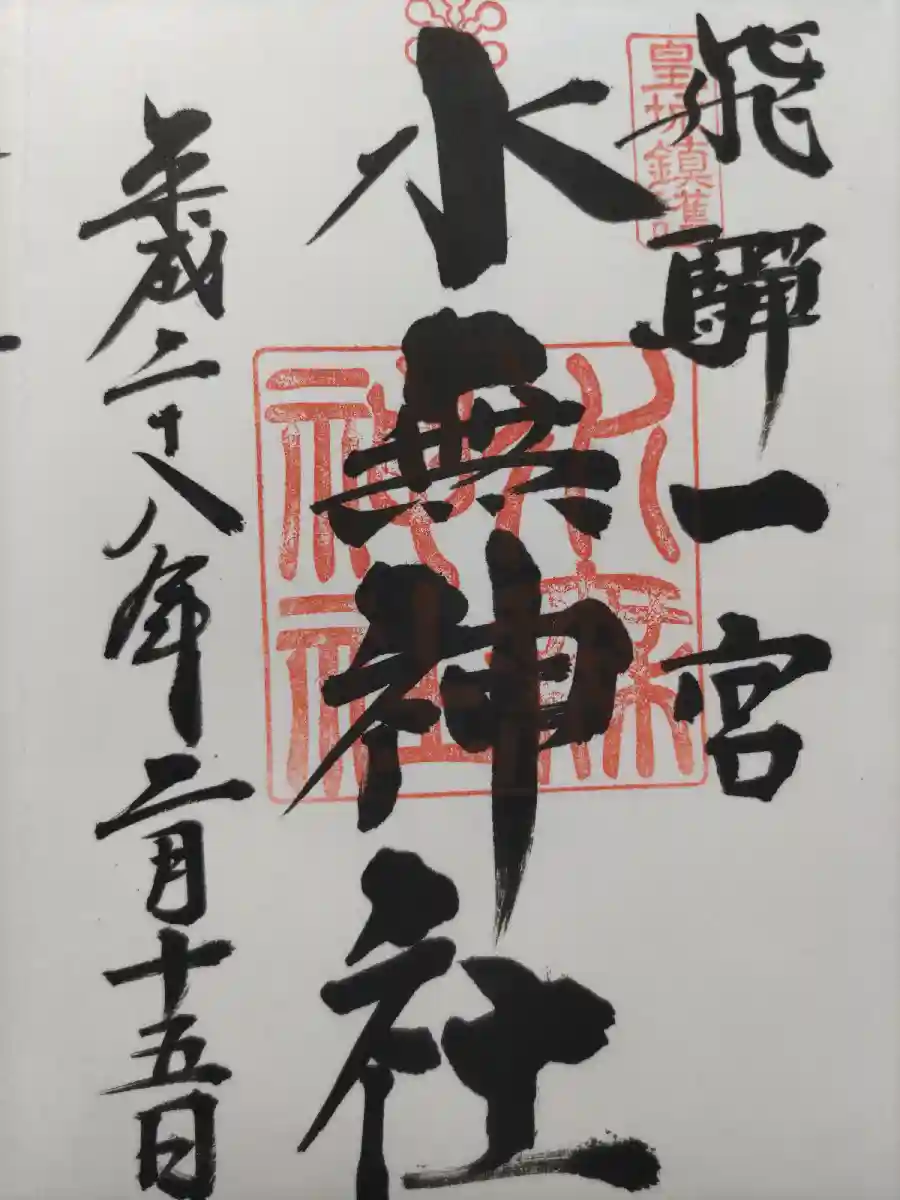 飛驒一宮
皇城鎮護
水無神社
水無神社
平成二十八年二月十五日